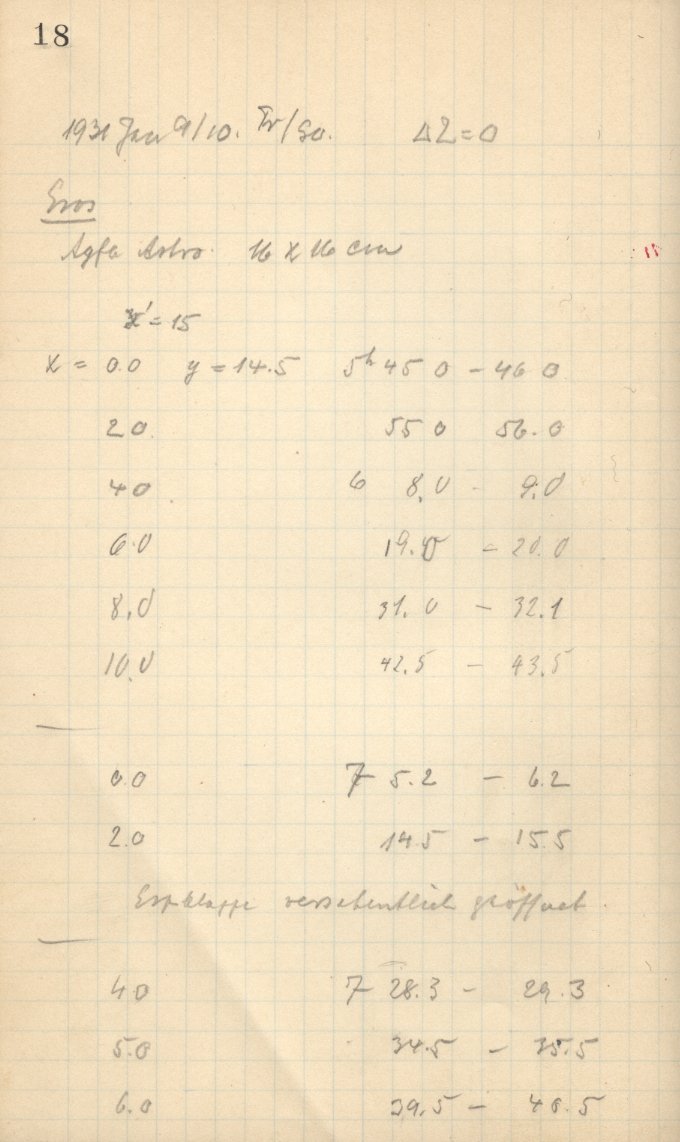 18
1931 Jan 9/10. Fr/So. ΔZ=0
Eros
Agfa Astro. 16 x 16 cm
x'=15
x = 0.0 y = 14.5 5h 45 0 - 46 0
2 0. 55 0 56.0
4 0 6 8.0 - 9.0
6.0 19.0 - 20.0
8.0 31.0 - 32.1
10.0 42.5 - 43.5
0.0 7 5.2 - 6.2
2.0 14.5 - 15.5
Expklappe versehentlich geöffnet
4.0 7 28.3 - 29.3
5.0 34.5 - 35.5
6.0 39.5 - 40.5